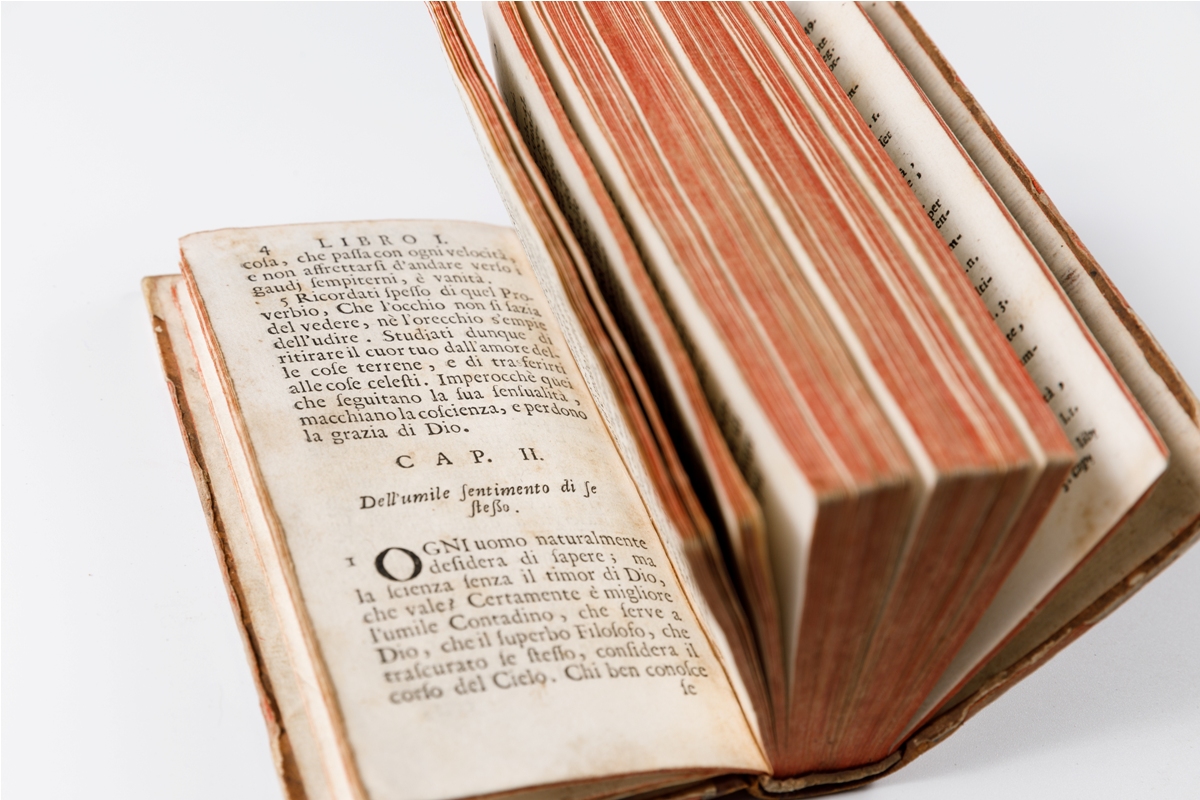 4 LIBRO I.
coſa, che paſſa con ogni velocità,
e non affrettarſi d'andare verſo i
gaudj ſempiterni, è vanità.
5 Ricordati ſpeſſo di quel Pro-
verbio, Che l'occhio non ſi ſazia
del vedere, nè l'orecchio s'empie
dell'udire. Studiati dunque di
ritirare il cuor tuo dall'amore del-
le coſe terrene, e di trasferirti
alle coſe celeſti. Imperocchè quei
che ſeguitano la ſua ſenſualità,
macchiano la coſcienza, e perdono
la grazia di Dio.
CAP. II.
Dell'umile ſentimento di ſe
ſteſſo.
1 OGNI uomo naturalmente
deſidera di ſapere; ma
la ſcienza ſenza il timor di Dio,
che vale? Certamente è migliore
l'umile Contadino, che ſerve a
Dio, che il ſuperbo Filoſofo, che
traſcurato ſe ſteſſo, conſidera il
corſo del Cielo. Chi ben conoſce
ſe
per